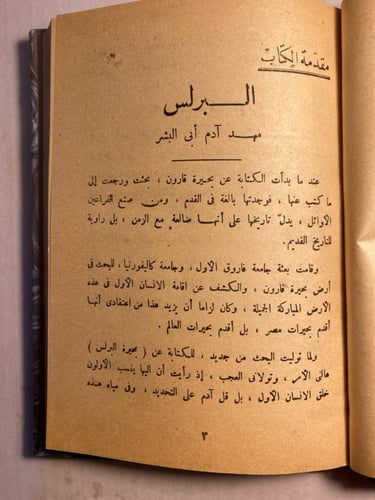 مقدمة الكتاب
البرلس
مهد آدم أبى البشر
عند ما بدأت الكتابة عن بحيرة قارون ، بحثت ورجعت إلى
ما كتب عنها ، فوجدتها بالغة فى القدم ، ومن صنع الفراعين
الأوائل ، يدل تاريخها على أنها ضالعة مع الزمن ، بل راوية
للتاريخ القديم .
وقامت بعثة جامعة فاروق الأول ، وجامعة كاليفورنيا ، للبحث فى
أرض بحيرة قارون ، والكشف عن اقامة الانسان الأول فى هذه
الأرض المباركة الجميلة ، وكان لزاما أن يزيد هذا من اعتقادى أنها
أقدم بحيرات مصر ، بل أقدم بحيرات العالم .
ولما توليت البحث من جديد ، للكتابة عن ( بحيرة البرلس )
هالنى الأمر ، وتولانى العجب ، إذ رأيت أن اليها ينسب الأولون
خلق الانسان الأول ، بل قل آدم على التحديد ، وفى مياه هذه
٣